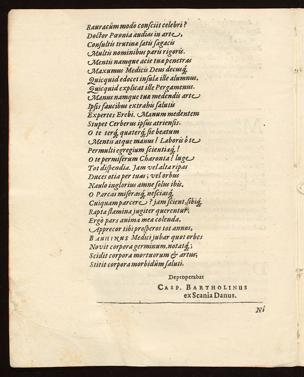 Rauracûm modò consciit celebri?
Doctor Pavonia audias in arte,
Consultis trutinæ satis sagacis
Multis nominibus parü rigoris.
Mentis namque acie tua penetras
Maxumus Medicis Deus decusq́,
Quicquid edocet insula ille alumnus,
Quicquid explicat ille Pergamenus.
Manus namque tua medendi arte
Ipsis faucibus extrahis salutis
Expertes Erebi. Manum medentem
Stupet Cerberus ipsus atriensis.
O te terq́, quaterq́, sic beatum
Mentis atque manus! Laboris ô te
Permulti egregium scientiæq́!
O te permiserum Charonta! luge
Tot dispendia. Jam vel alta ripas
Duces otia per tuas; vel orbus
Naulo inglorius amne solus ibis.
O Parcas miserasq́, nesciasq́,
Cuiquam parcere? jam scient sibiq́
Rapta stamina jugiter querentur.
Ergò pars animæ meæ colenda,
Apprecor tibi prosperos tot annos,
BAUHINUS Medici jubar quot orbes
Novit corpora germinum, notatq́;
Scidit corpora mortuorum & artus,
Stitit corpora morbidûm saluti.
Deproperabat
CASP. BARTHOLINUS
ex Scania Danus.